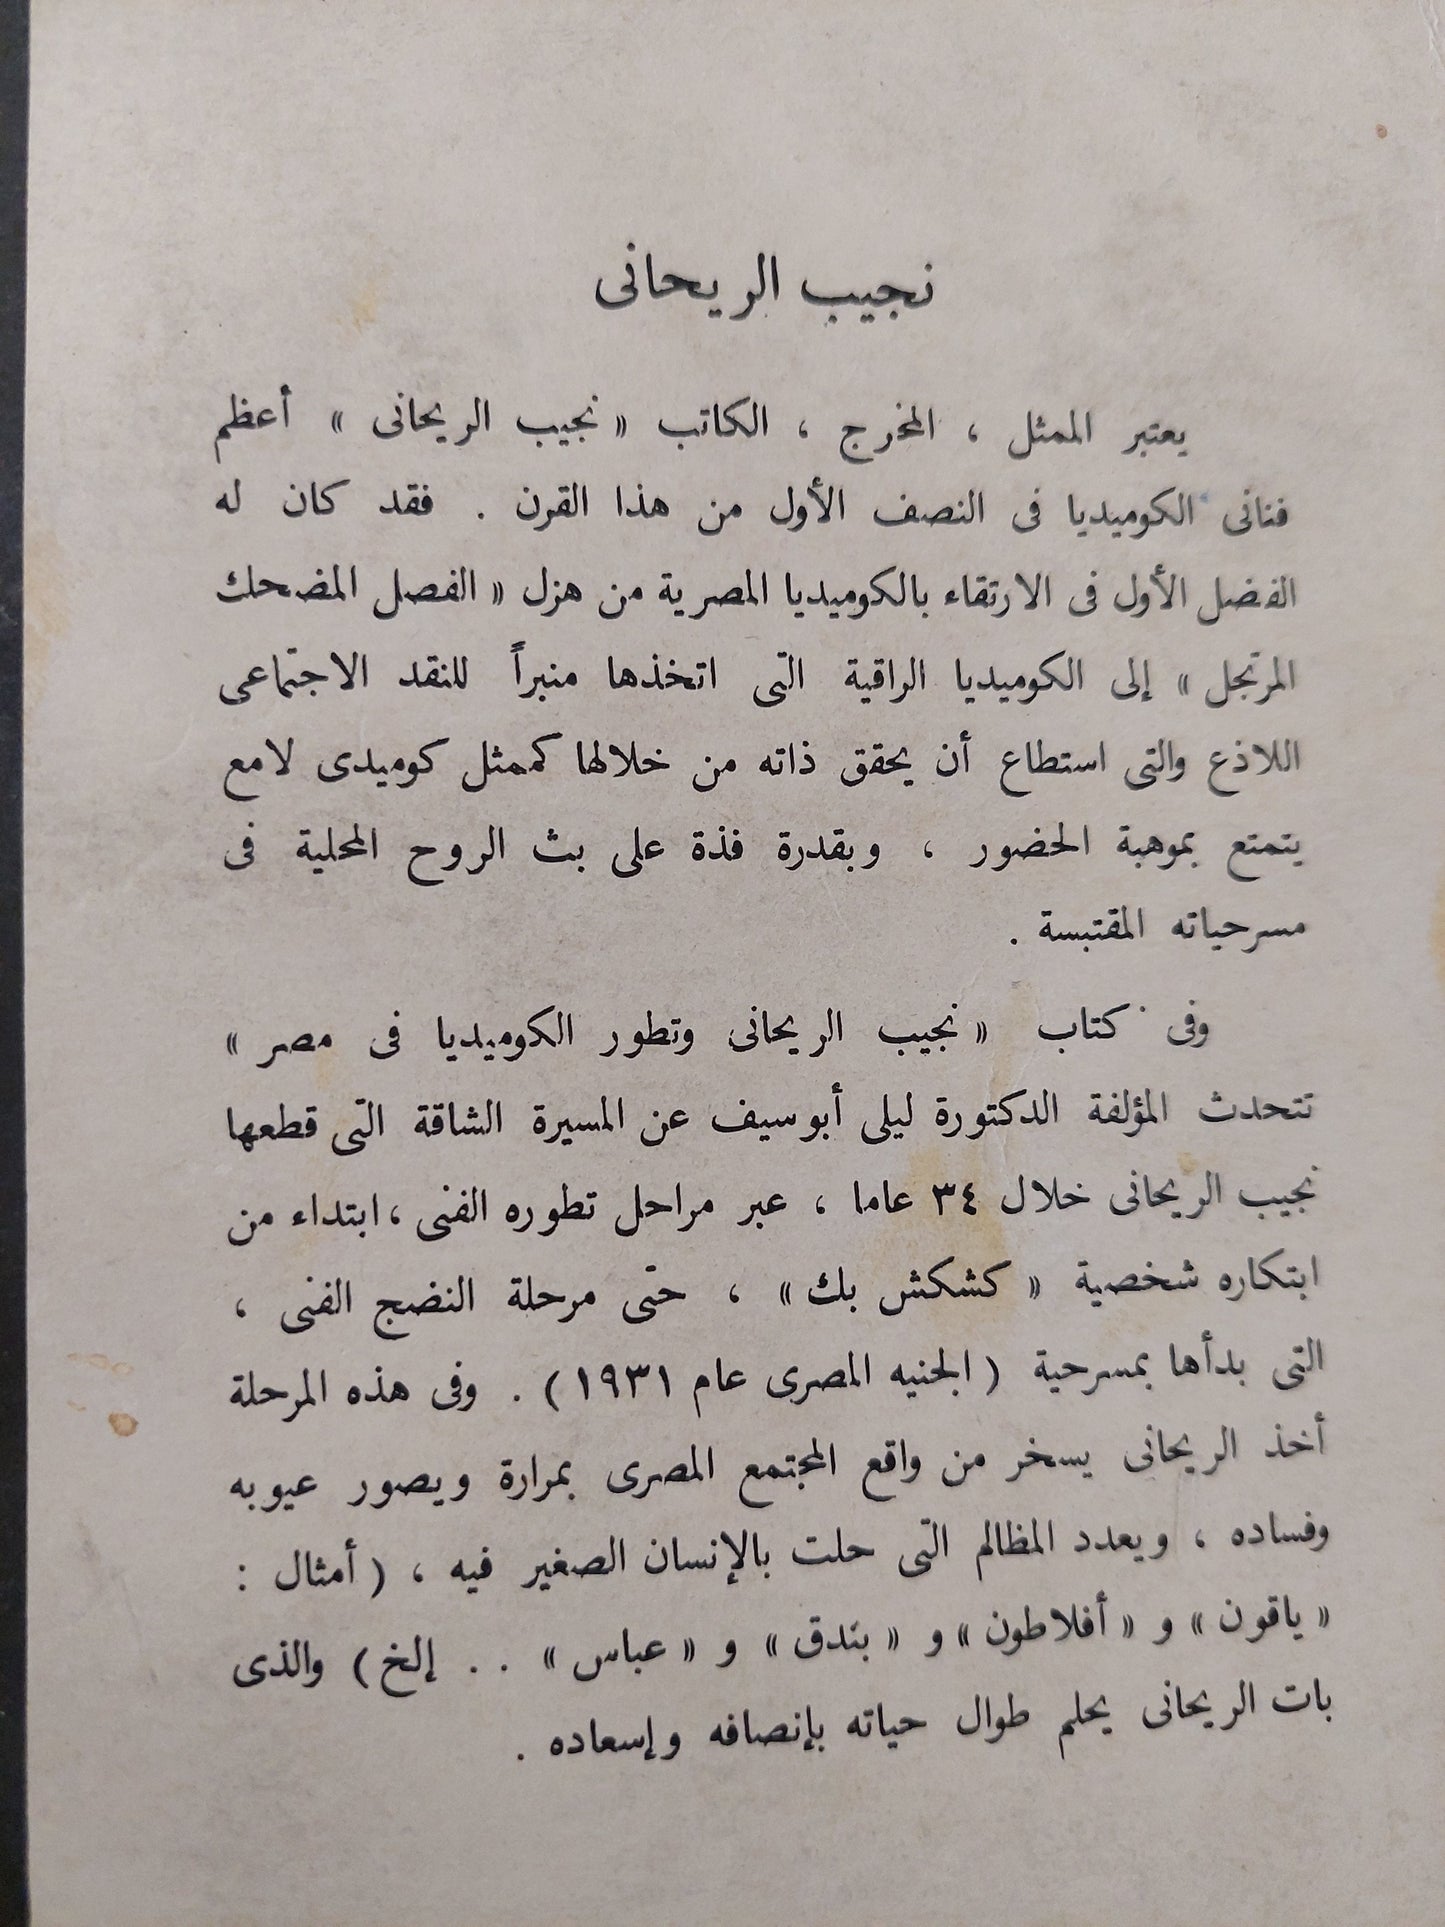 نجيب الريحانى
يعتبر الممثل ، المخرج ، الكاتب « نجيب الريحانى » أعظم
فنانى الكوميديا فى النصف الأول من هذا القرن . فقد كان له
الفضل الأول فى الارتقاء بالكوميديا المصرية من هزل « الفصل المضحك
المرتجل » إلى الكوميديا الراقية التى اتخذها منبراً للنقد الاجتماعى
اللاذع والتى استطاع أن يحقق ذاته من خلالها كممثل كوميدى لامع
يتمتع بموهبة الحضور ، وبقدرة فذة على بث الروح المحلية فى
مسرحياته المقتبسة .
وفى كتاب « نجيب الريحانى وتطور الكوميديا فى مصر »
تتحدث المؤلفة الدكتورة ليلى أبو سيف عن المسيرة الشاقة التى قطعها
نجيب الريحانى خلال ٣٤ عاما ، عبر مراحل تطوره الفنى ، ابتداء من
ابتكاره شخصية « كشكش بك » ، حتى مرحلة النضج الفنى ،
التى بدأها بمسرحية ( الجنيه المصرى عام ١٩٣١ ) . وفى هذه المرحلة
أخذ الريحانى يسخر من واقع المجتمع المصرى بمرارة ويصور عيوبه
وفساده ، ويعدد المظالم التى حلت بالإنسان الصغير فيه ، ( أمثال :
« ياقون » و « أفلاطون » و « بندق » و « عباس » . . إلخ ) والذى
بات الريحانى يحلم طوال حياته بإنصافه وإسعاده .